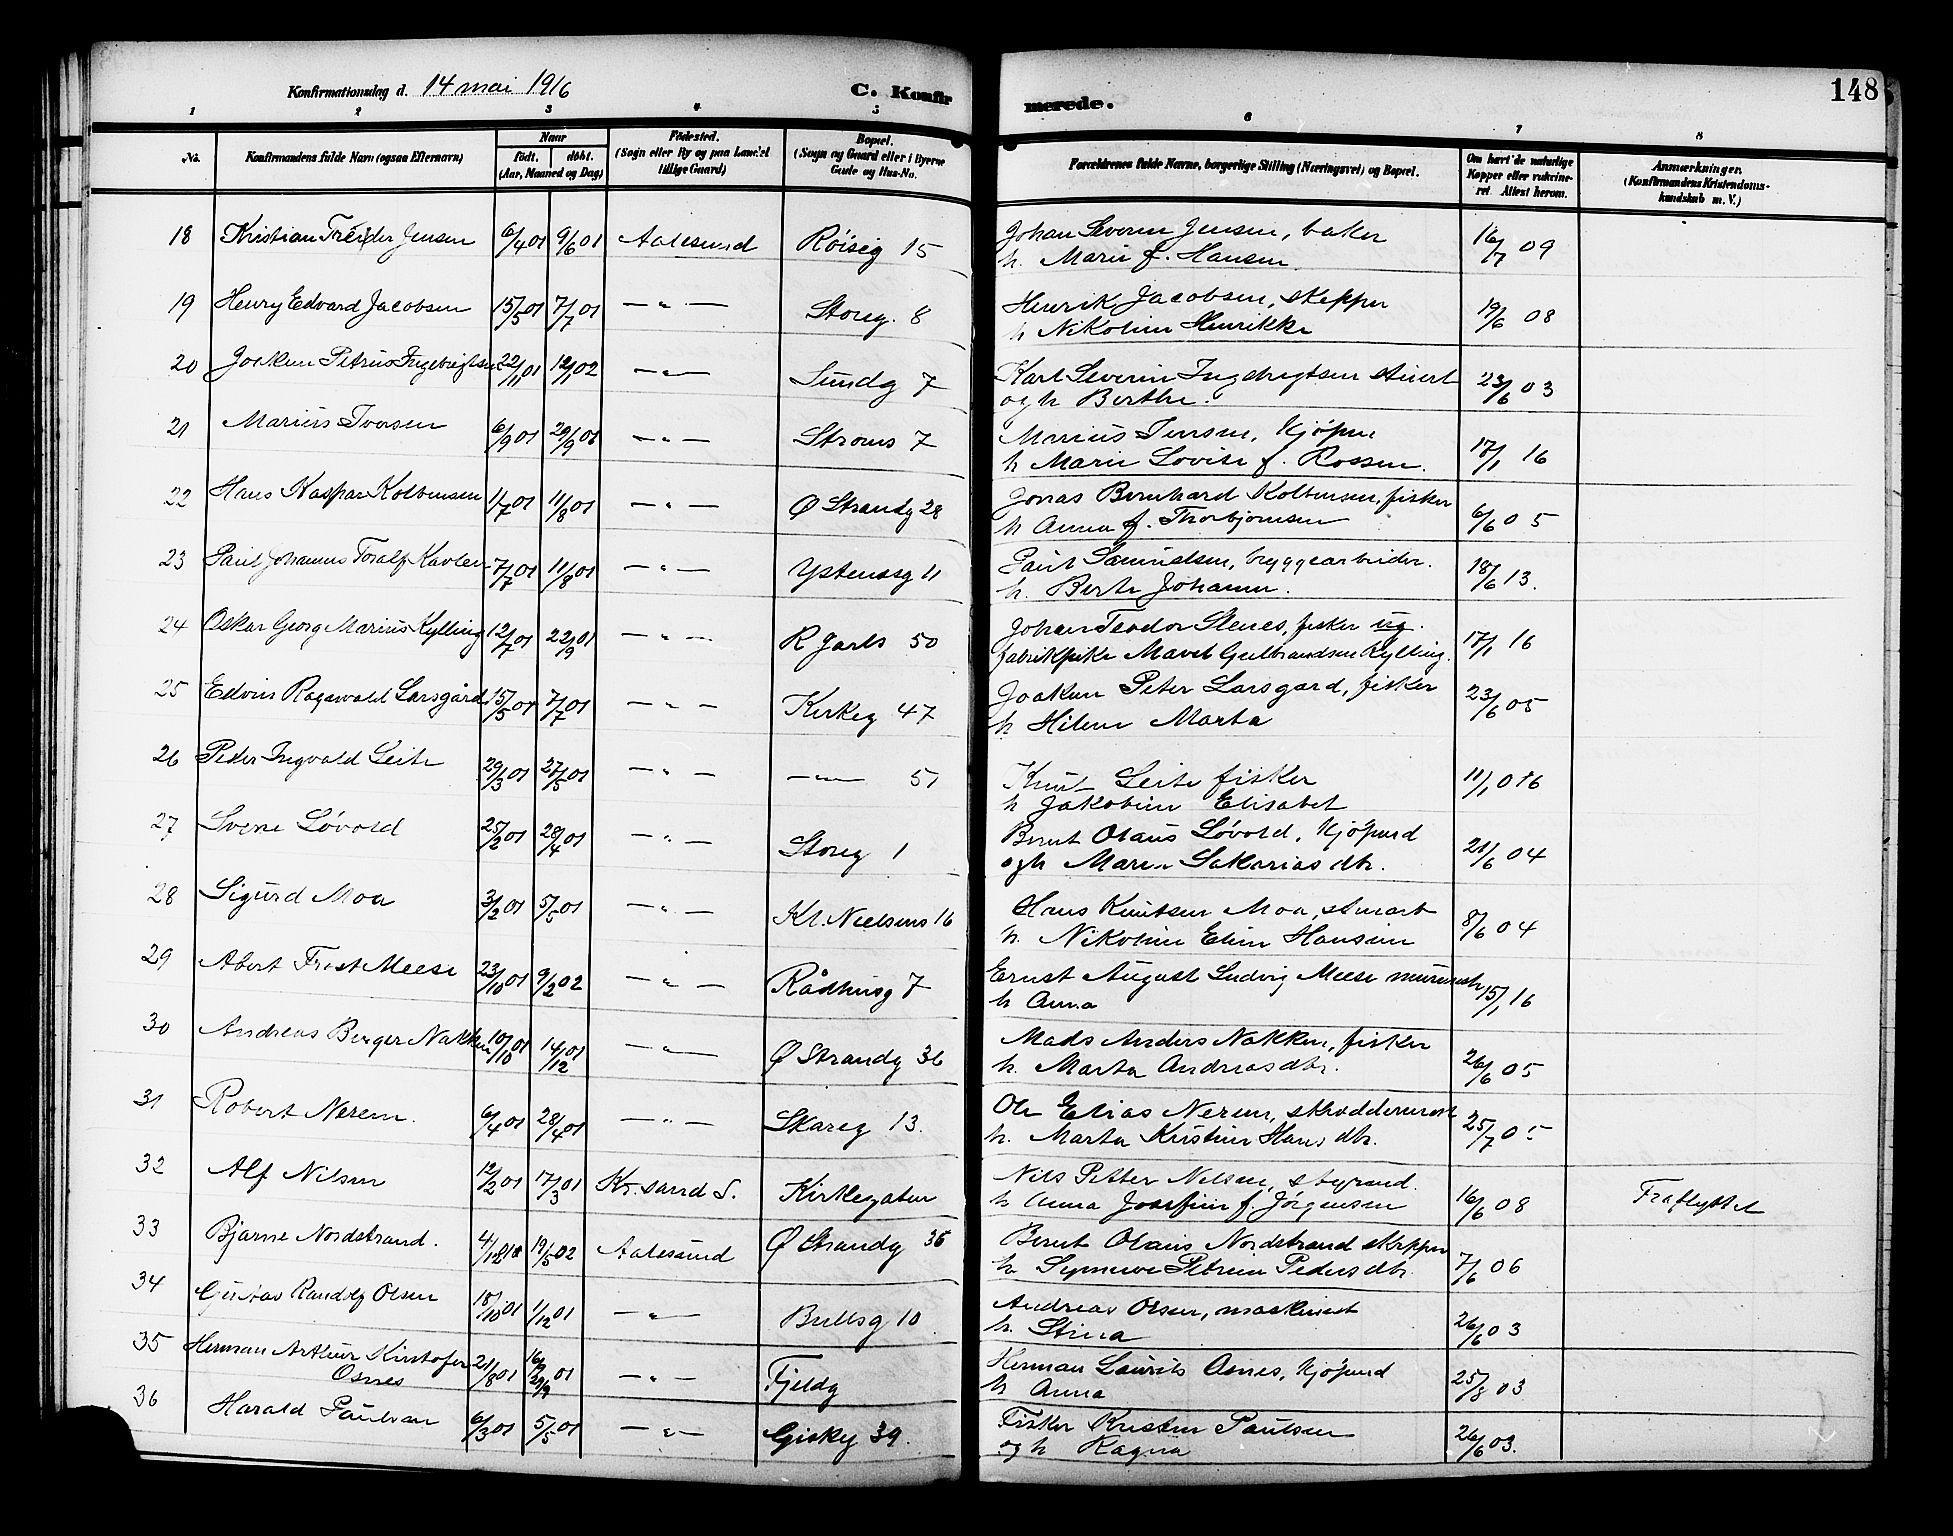 Konfirmationsdag d. 14 mai 1916
C. Konfirmerede.
148
1 2 3 4 5 6 7 8
No.
Konfirmandens fulde Navn (ogsaa Efternavn)
Naar
födt. döbt.
(Aar, Maaned og Dag)
Födested.
(Sogn eller By og paa Landet
tillige Gaard)
Bopæl.
(Sogn og Gaard eller i Byerne
Gade og Hus-No.
Forældrenes fulde Navne, borgerlige Stilling (Næringsvei) og Bopæl.
Om havt de naturlige
Kopper eller vakcine-
ret. Attest herom.
Anmærkninger.
(Konfirmandens Kristendoms-
kundskab m. V.)
18 Kristian Jensen 6/4 01 9/6 01 Aalesund Røiseg 15 Johan Severin Jensen, baker 16/7 09
h. Marie f. Hansen
19 Henry Edvard Jacobsen 15/5 01 7/7 01 — " — Storeg. 8 Henrik Jacobsen, skipper 19/6 08
h Nikoline Henrikke
20 Joakim Petrus Ingebrigtsen 22/11 01 12/1 02 — " — Sundg 7 Karl Severin Ingebrigtsen stuert 23/6 03
og h Berthe.
21 Marius Iversen 6/9 01 29/9 01 — " — Stroms 7 Marius Iversen, kjøpm 17/1 16
h Marie Lovise f. Rossen.
22 Hans Kaspar Kolbensen 1/7 01 11/8 01 — " — Ø Strandg 28 Jonas Bernhard Kolbensen, fisker 6/6 05
h Anna f. Thorbjørnsen
23 Paul Johannes Toralf Kavlen 7/7 01 11/8 01 — " — Ystenesg 11 Paul Samuelsen, byggearbeider. 18/6 13.
h. Berte Johanne.
24 Oskar Georg Marius Kylling 12/7 01 22/9 01 — " — R Jarls 50 Johan Teodor Stenes, fisker ug. 17/1 16
fabrikpike Maret Gulbrandsen Kylling.
25 Edvin Ragnvald Larsgård 15/5 01 7/7 01 — " — Kirkeg 47 Joakim Peter Larsgard, fisker 23/6 05
h Hilene Marta
26 Peder Ingvald Leite 29/3 01 27/5 01 — " — — " — 51 Knut Leite fisker 11/1 016
h Jakobine Elisabet
27 Sverre Løvold 25/2 01 28/4 01 — " — Storeg 1 Bernt Olaus Løvold, kjøpmd 21/6 04
og h Maren Sakarias dtr.
28 Sigurd Moa 3/2 01 5/5 01 — " — Kr. Nielsens 16 Hans Knutsen Moa, stuart 8/6 04
h. Nikoline Eline Hansen
29 Abert Frost Meese 23/10 01 9/2 02 — " — Rådhusg 7 Ernst August Ludvig Meese murmestr 15/1 16
h Anna
30 Andreas Birger Nakken 10/10 01 14/12 01 — " — Ø Strandg 36 Mads Anders Nakken, fisker 26/6 05
h. Marta Andreasdtr.
31 Robert Nerem. 6/4 01 28/4 01 — " — Skareg 13. Ole Elias Nerem, skræddermest 25/7 05
h. Marta Kristine Hans dtr.
32 Alf Nilsen 12/2 01 17/3 01 Kr. sand S. Kirkegaten Nils Petter Nilsen, styrmd. 16/6 08 Fraflyttet
h Anna Josefine f. Jørgensen
33 Bjarne Nordstrand. 19/5 02 Aalesund Ø Strandg 36 Bernt Olaus Nordstrand skipper 7/6 06
h. Synneve Petrine Pedersdtr.
34 Gustav Randolf Olsen 18/10 01 1/12 01 — " — Bullsg 10 Andreas Olsen, maskinist 26/6 03
h. Stina
35 Herman Arthur Kristofer 21/8 01 — " — Fjeldg Herman Laurits Osnes, kjøpmd 25/8 03
Osnes h Anna
36 Harald Paulsen 6/3 01 5/5 01 — " — Giskeg 39. Fisker Kristen Paulsen 26/6 03.
og h Ragna